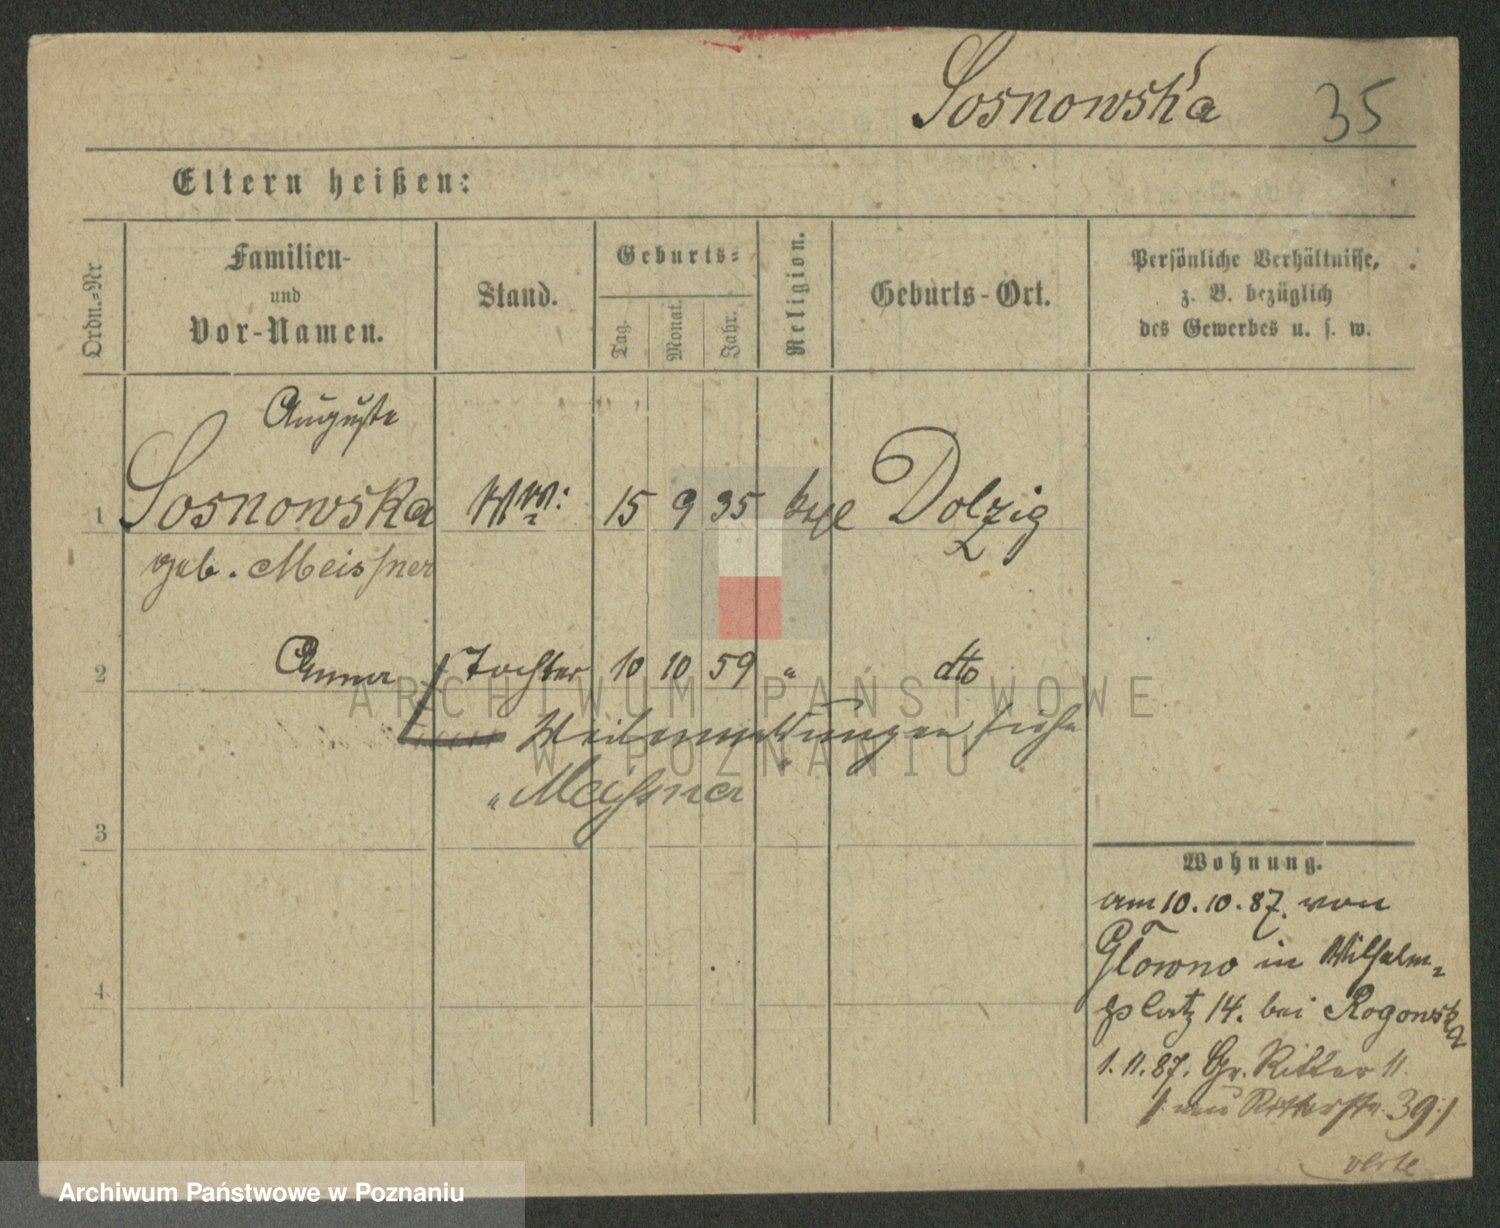 Sosnowska 35
Eltern heißen:
Ordn.=Nr
Familien-
und
Vor-Namen.
Stand.
Geburts=
Tag.
Monat.
Jahr.
Religion.
Geburts-Ort.
Persönliche Verhältnisse,
z. B. bezüglich
des Gewerbes u. s. w.
Auguste
1 Sosnowska Ww: 15 9 35 Dolzig
geb. Meissner
2 Anna Tochter 10 10 59 " dto
siehe
"Meissner
3
4
Wohnung.
am 10.10.87. von
Glowno in Wilhelm=
platz 14. bei Rogowska
1.11.87. Gr. Ritter 11.
/: neu Ritterstr. 39 :/
verte
ARCHIWUM PAŃSTWOWE
W POZNANIU
Archiwum Państwowe w Poznaniu